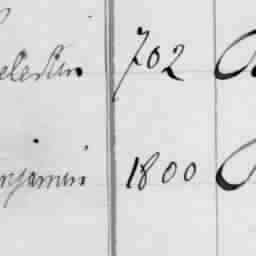 Celestin 702
Benjamin 1800